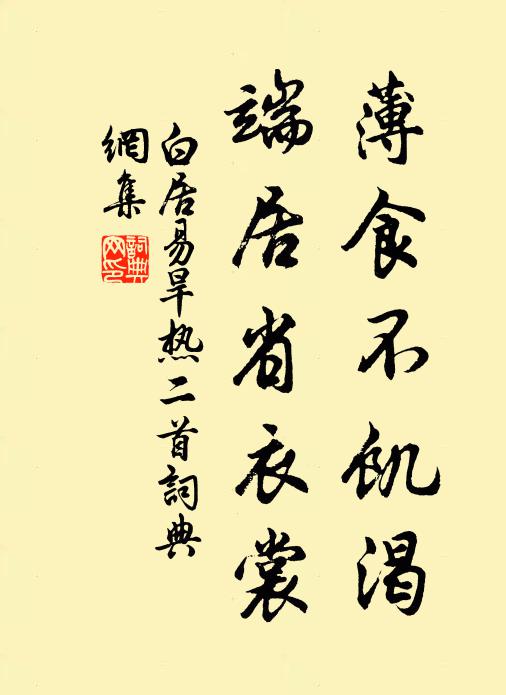 薄食不飢渴
端居省衣裳
白居易旱热二首詞典
網集
詞典
网印